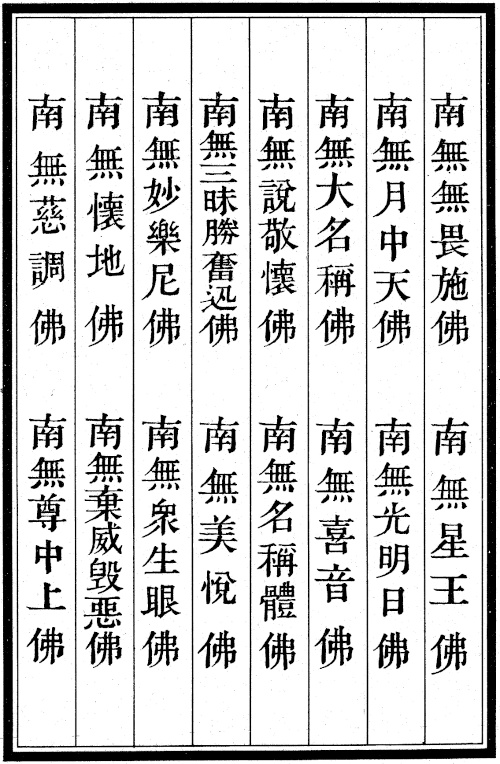 南無無畏施佛　南無星王佛
南無月中天佛　南無光明日佛
南無大名稱佛　南無喜音佛
南無說敬懷佛　南無名稱體佛
南無三昧勝奮迅佛　南無美悅佛
南無妙樂尼佛　南無衆生眼佛
南無懷地佛　南無棄威毀惡佛
南無慈調佛　南無尊中上佛